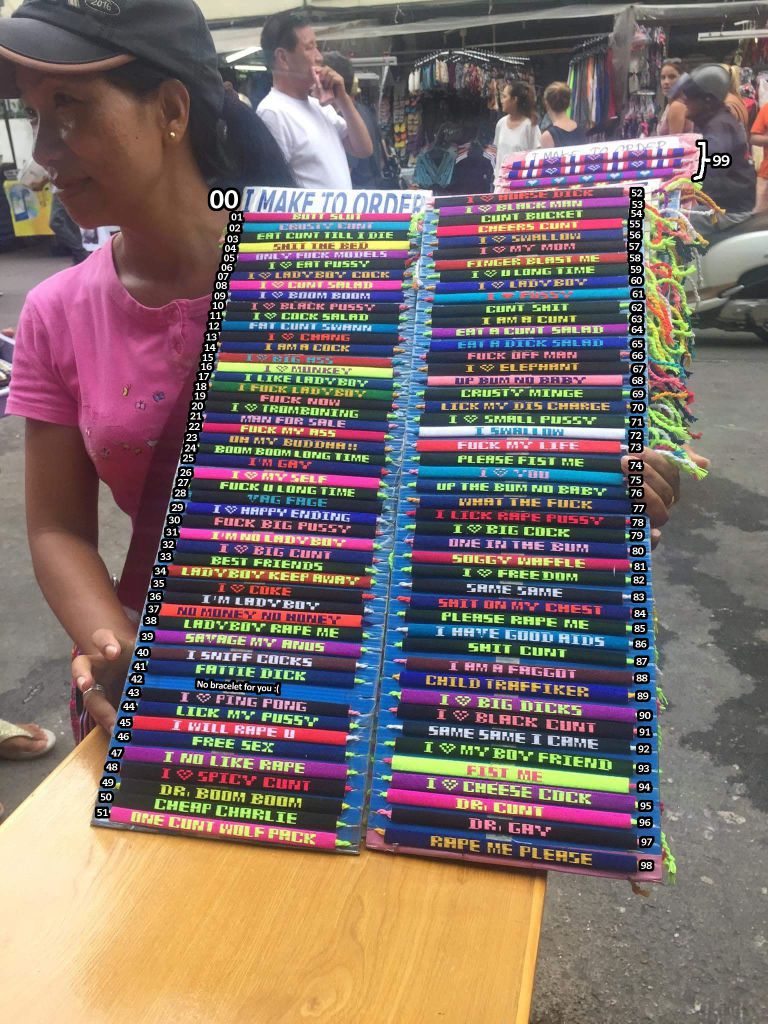 2016
I MAKE TO ORDER 99
00 I MAKE TO ORDER
01 BUTT SLUT
02 CRUSTY CUNT
03 EAT CUNT TILL I DIE
04 SHIT THE BED
05 ONLY FUCK MODELS
06 I ♡ EAT PUSSY
07 I ♡ LADYBOY COCK
08 I ♡ CUNT SALAD
09 I ♡ BOOM BOOM
10 I ♡ BLACK PUSSY
11 I ♡ COCK SALAD
12 FAT CUNT SWANN
13 I ♡ CHANG
14 I AM A COCK
15 I ♡ BIG ASS
16 I ♡ MONKEY
17 I LIKE LADYBOY
18 I FUCK LADYBOY
19 FUCK NOW
20 I ♡ TROMBONING
21 MAN FOR SALE
22 FUCK MY ASS
23 OH MY BUDDHA!!
24 BOOM BOOM LONG TIME
25 I'M GAY
26 I ♡ MY SELF
27 FUCK U LONG TIME
28 VAG FACE
29 I ♡ HAPPY ENDING
30 FUCK BIG PUSSY
31 I'M NO LADYBOY
32 I ♡ BIG CUNT
33 BEST FRIENDS
34 LADYBOY KEEP AWAY
35 I ♡ COKE
36 I'M LADYBOY
37 NO MONEY NO HONEY
38 LADYBOY RAPE ME
39 SAVAGE MY ANUS
40 I SNIFF COCKS
41 FATTIE DICK
42 No bracelet for you :(
43 I ♡ PING PONG
44 LICK MY PUSSY
45 I WILL RAPE U
46 FREE SEX
47 I NO LIKE RAPE
48 I ♡ SPICY CUNT
49 DR. BOOM BOOM
50 CHEAP CHARLIE
51 ONE CUNT WOLF PACK
I ♡ HORSE DICK 52
I ♡ BLACK MAN 53
CUNT BUCKET 54
CHEERS CUNT 55
I ♡ SWALLOW 56
I ♡ MY MOM 57
FINGER BLAST ME 58
I ♡ U LONG TIME 59
I ♡ LADYBOY 60
I ♡ PUSSY 61
CUNT SHIT 62
I AM A CUNT 63
EAT A CUNT SALAD 64
EAT A DICK SALAD 65
FUCK OFF MAN 66
I ♡ ELEPHANT 67
UP BUM NO BABY 68
CRUSTY MINGE 69
LICK MY DIS CHARGE 70
I ♡ SMALL PUSSY 71
I SWALLOW 72
FUCK MY LIFE 73
PLEASE FIST ME 74
I ♡ YOU 75
UP THE BUM NO BABY 76
WHAT THE FUCK 77
I LICK RAPE PUSSY 78
I ♡ BIG COCK 79
ONE IN THE BUM 80
SOGGY WAFFLE 81
I ♡ FREEDOM 82
SAME SAME 83
SHIT ON MY CHEST 84
PLEASE RAPE ME 85
I HAVE GOOD AIDS 86
SHIT CUNT 87
I AM A FAGGOT 88
CHILD TRAFFIKER 89
I ♡ BIG DICKS 90
I ♡ BLACK CUNT 91
SAME SAME I CAME 92
I ♡ MY BOY FRIEND 93
FIST ME 94
I ♡ CHEESE COCK 95
DR. CUNT 96
DR. GAY 97
RAPE ME PLEASE 98